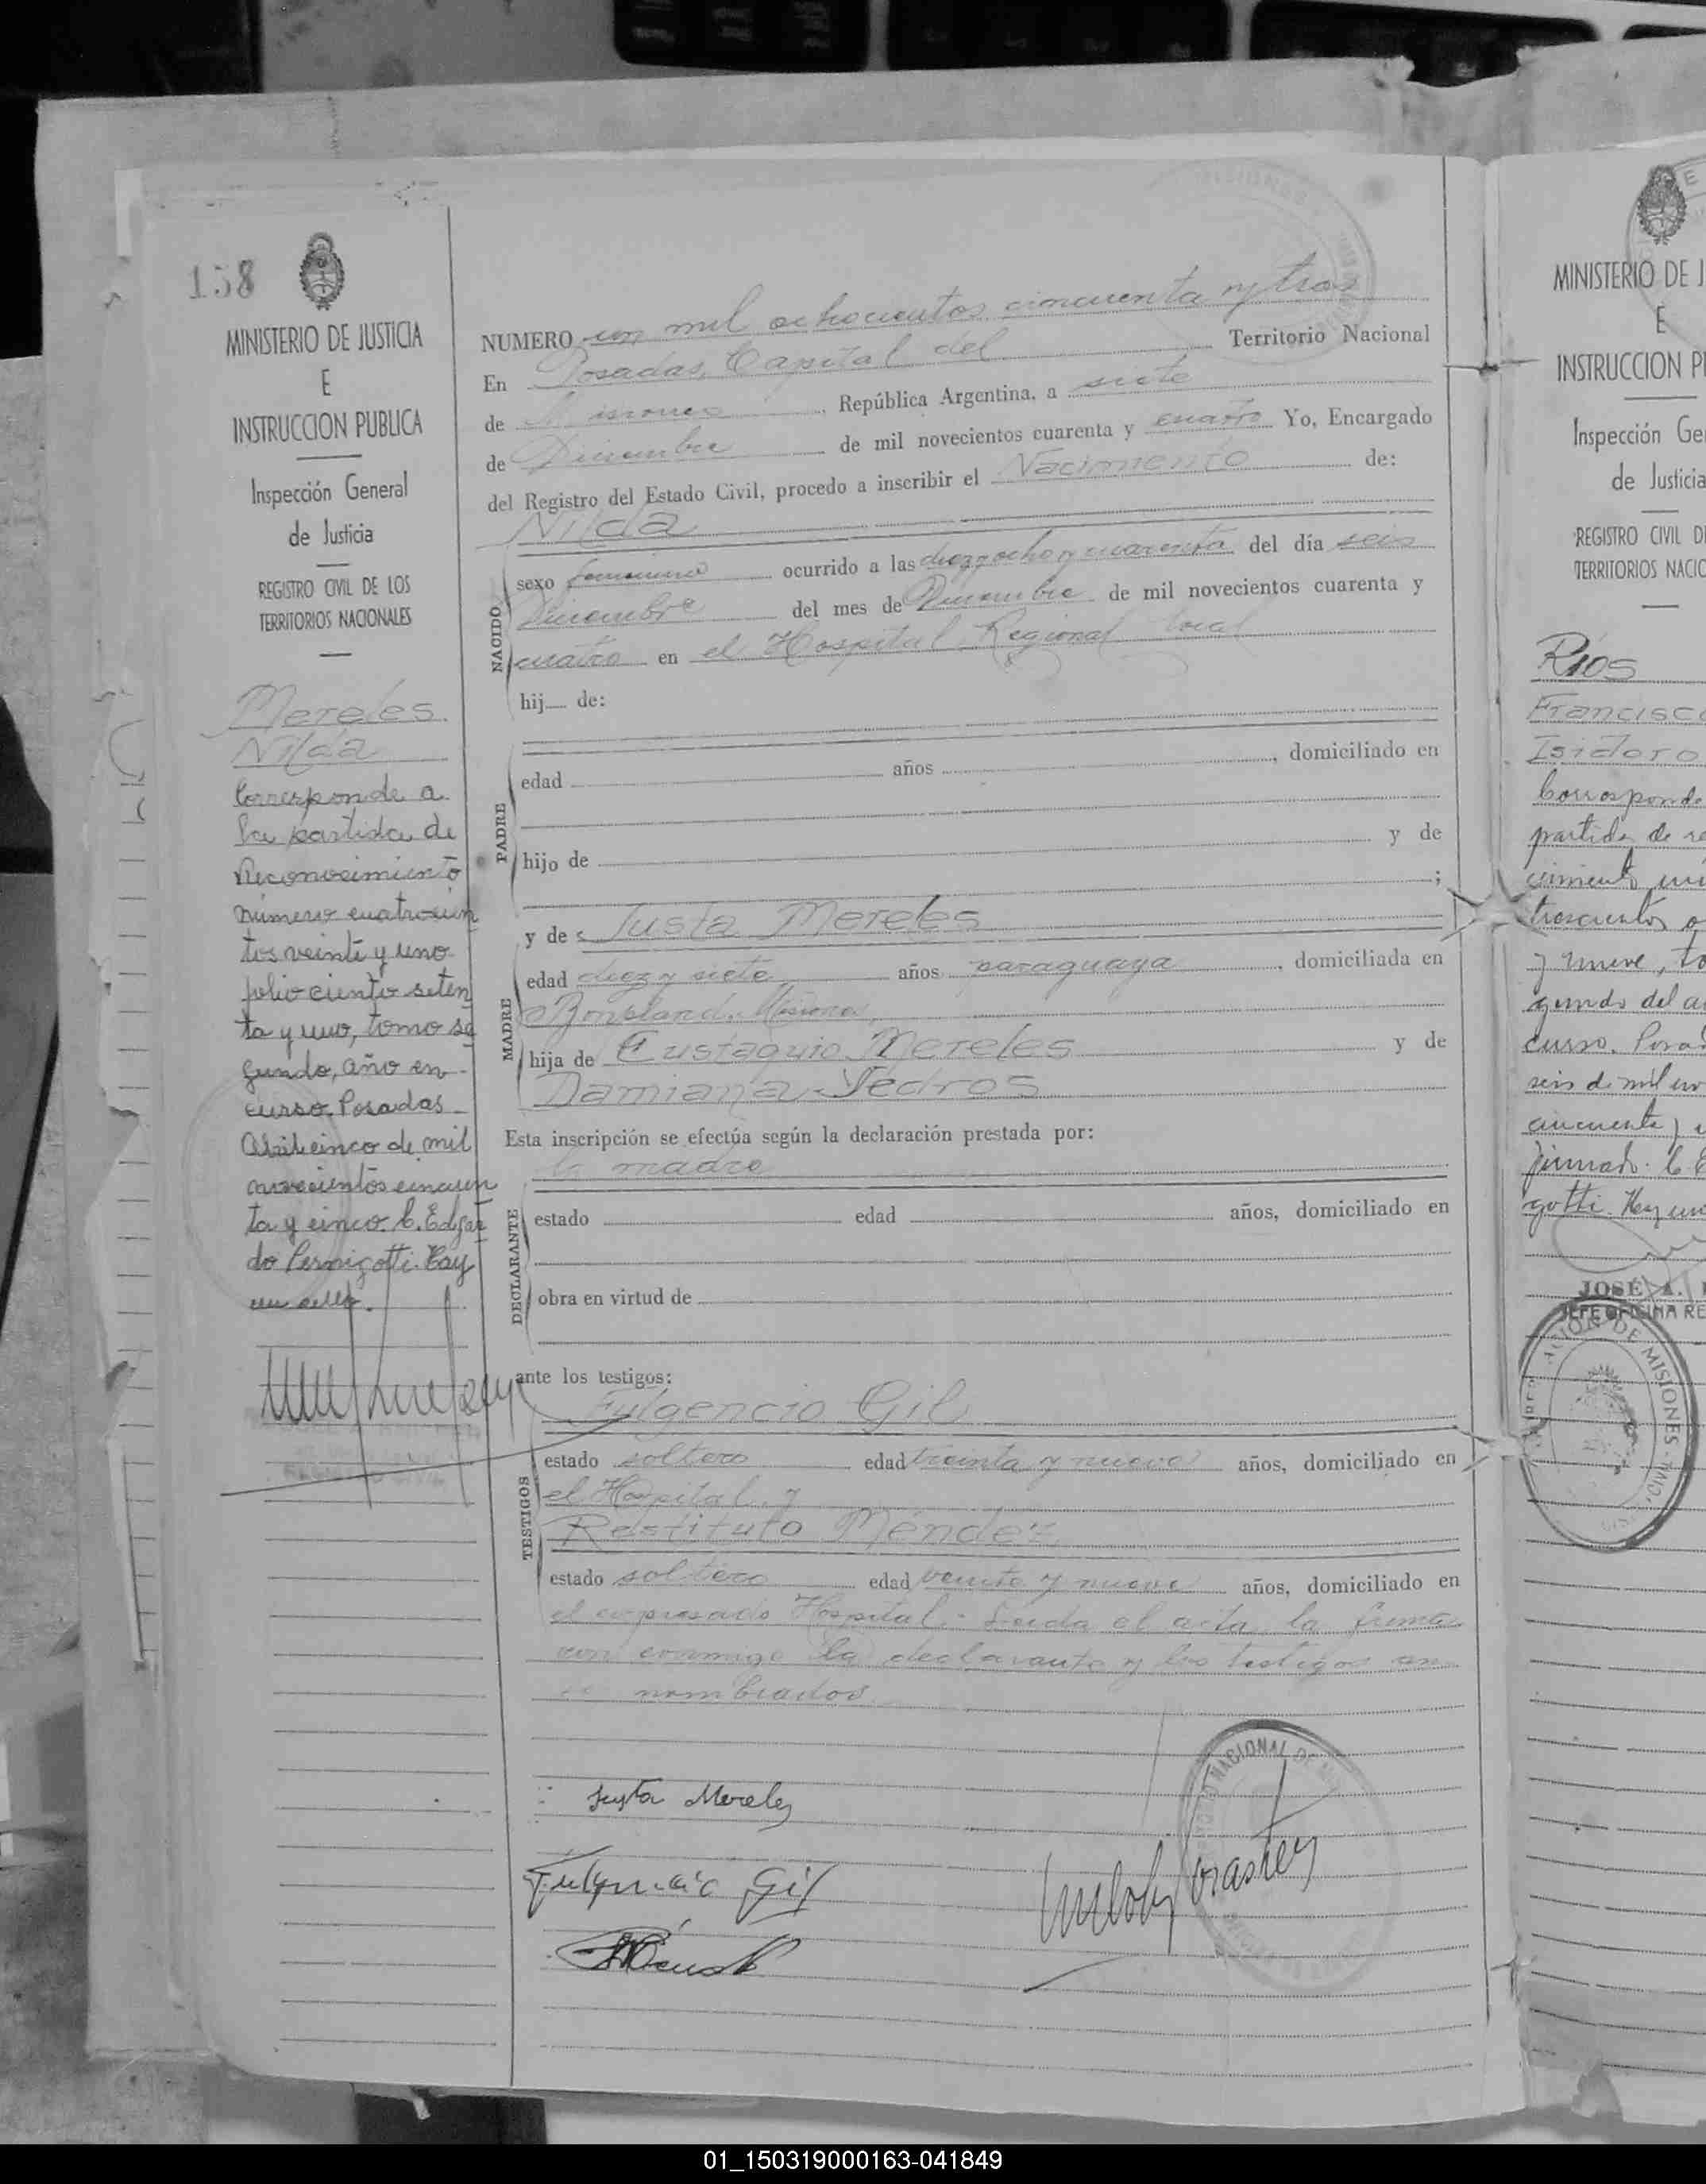 158
MINISTERIO DE JUSTICIA
E
INSTRUCCION PUBLICA
Inspección General
de Justicia
REGISTRO CIVIL DE LOS
TERRITORIOS NACIONALES
Mereles
Nilda
Corresponde a
la partida de
Reconocimiento
número cuatrocien
tos veinte y uno
folio ciento seten
ta y uno, tomo se
gundo, año en
curso. Posadas
Abril cinco de mil
novecientos cincuen
ta y cinco. C. Edgar
do Pernigotti. Hay
un sello.
NUMERO un mil ochocientos cincuenta y tres
En Posadas, Capital del Territorio Nacional
de Misiones, República Argentina, a siete
de Diciembre de mil novecientos cuarenta y cuatro Yo, Encargado
del Registro del Estado Civil, procedo a inscribir el Nacimiento de:
Nilda
NACIDO
sexo femenino ocurrido a las diez y ocho y cuarenta del día seis
Diciembre del mes de Diciembre de mil novecientos cuarenta y
cuatro en el Hospital Regional local
hij de:
PADRE
edad años , domiciliado en
hijo de y de
;
MADRE
y de Justa Mereles
edad diez y siete años paraguaya, domiciliada en
Bonpland. Misiones,
hija de Eustaquio Mereles y de
Damiana Yedros
Esta inscripción se efectúa según la declaración prestada por:
la madre
DECLARANTE
estado edad años, domiciliado en
obra en virtud de
ante los testigos:
TESTIGOS
Fulgencio Gil
estado soltero edad treinta y nueve años, domiciliado en
el Hospital y
Restituto Méndez
estado soltero edad veinte y nueve años, domiciliado en
el expresado Hospital.- Leida el acta, la firma
con conmigo la declarante y los testigos
nombrados.
Justa Mereles
Fulgencio Gil
MINISTERIO DE J
E
INSTRUCCION P
Inspección Ge
de Justicia
REGISTRO CIVIL D
TERRITORIOS NACIO
Ríos
Francisco
Isidoro
Corresponde
partida de re
cimiento
trescientos o
y nueve, to
gundo del a
curso. Posad
seis de mil
cincuenta y
firmado: C. E
gotti. Hay un
JOSÉ A.
JEFE OFICINA RE
DE MISIONES
01_150319000163-041849